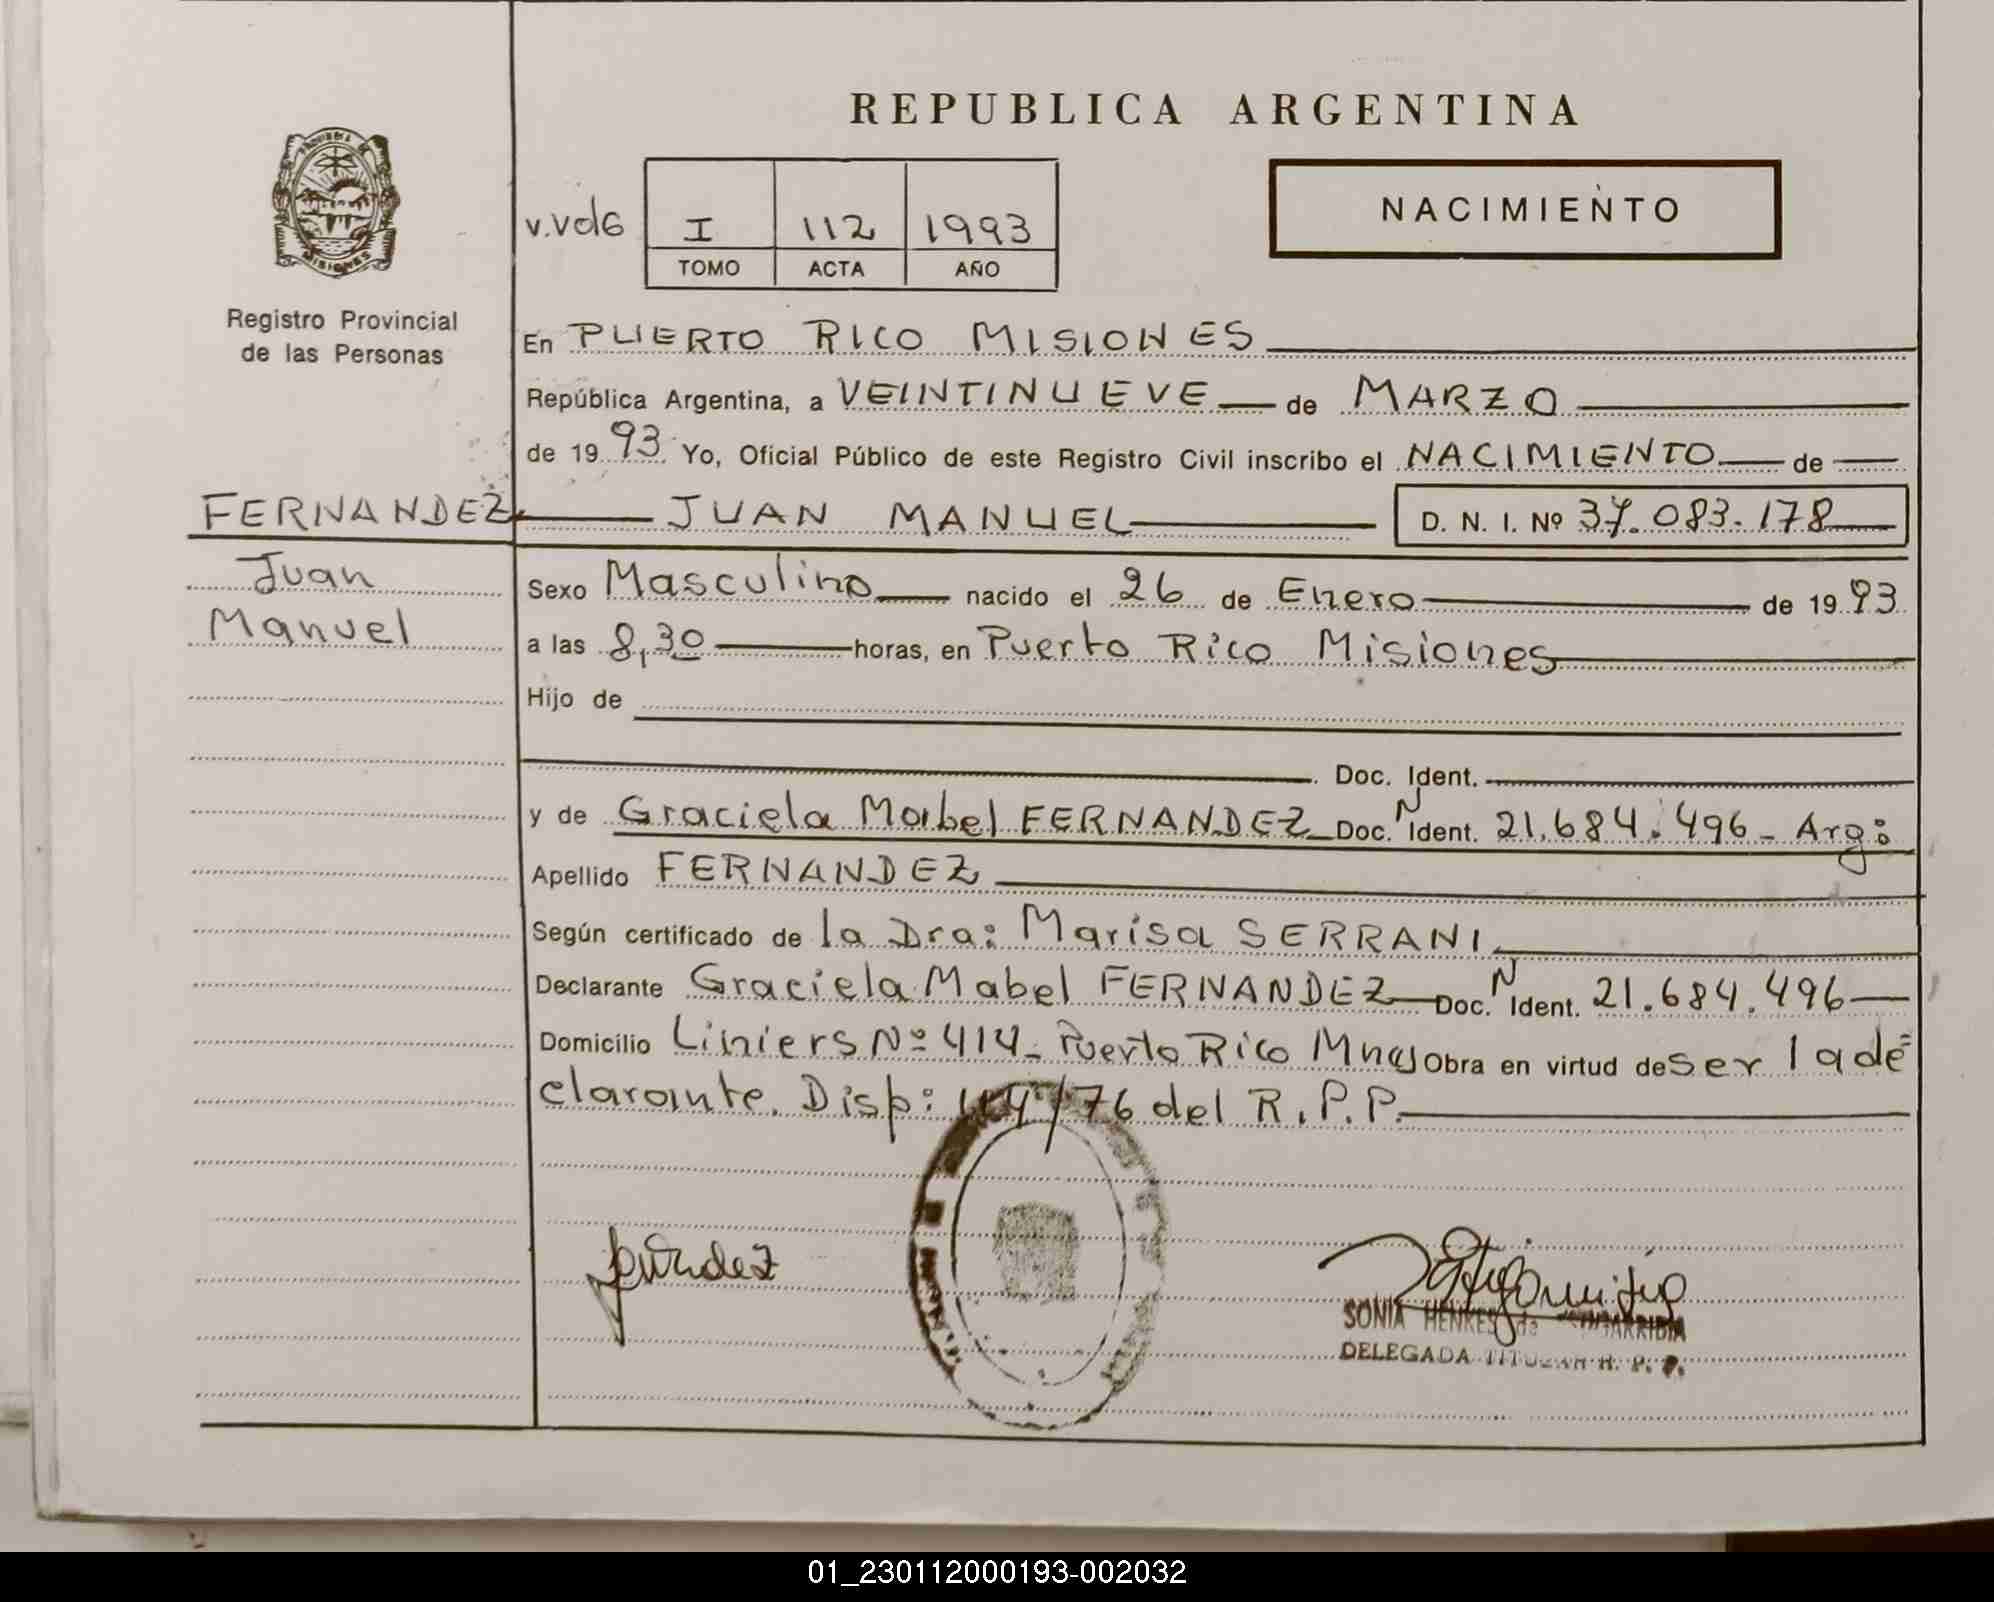 REPUBLICA ARGENTINA
NACIMIENTO
I 112 1993
TOMO ACTA AÑO
MISIONES
Registro Provincial
de las Personas
En PUERTO RICO MISIONES
República Argentina, a VEINTINUEVE de MARZO
de 1993 Yo, Oficial Público de este Registro Civil inscribo el NACIMIENTO de
FERNANDEZ JUAN MANUEL D. N. I. Nº 37.083.178
Juan
Manuel
Sexo Masculino nacido el 26 de Enero de 1993
a las 8,30 horas, en Puerto Rico Misiones
Hijo de
Doc. Ident.
y de Graciela Mabel FERNANDEZ Doc. N Ident. 21.684.496_ Arg:
Apellido FERNANDEZ
Según certificado de la Dra: Marisa SERRANI
Declarante Graciela Mabel FERNANDEZ Doc. N Ident. 21.684.496
Domicilio Liniers Nº 414_ Puerto Rico Mnes Obra en virtud de ser la de=
clarante. Disp: /76 del R.P.P.
SONIA HENKES de
DELEGADA TITULAR R. P. P.
01_230112000193-002032